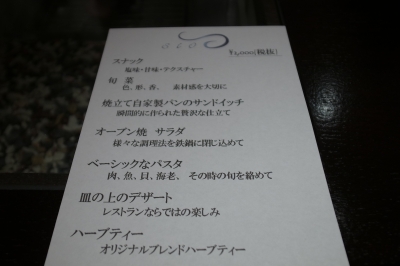 ¥5,000(税抜)
スナック
塩味・甘味・テクスチャー
旬 菜
色、形、香、 素材感を大切に
焼立て自家製パンのサンドイッチ
瞬間的に作られた贅沢な仕立て
オーブン焼 サラダ
様々な調理法を鉄鍋に閉じ込めて
ベーシックなパスタ
肉、魚、貝、海老、 その時の旬を絡めて
皿の上のデザート
レストランならではの楽しみ
ハーブティー
オリジナルブレンドハーブティー